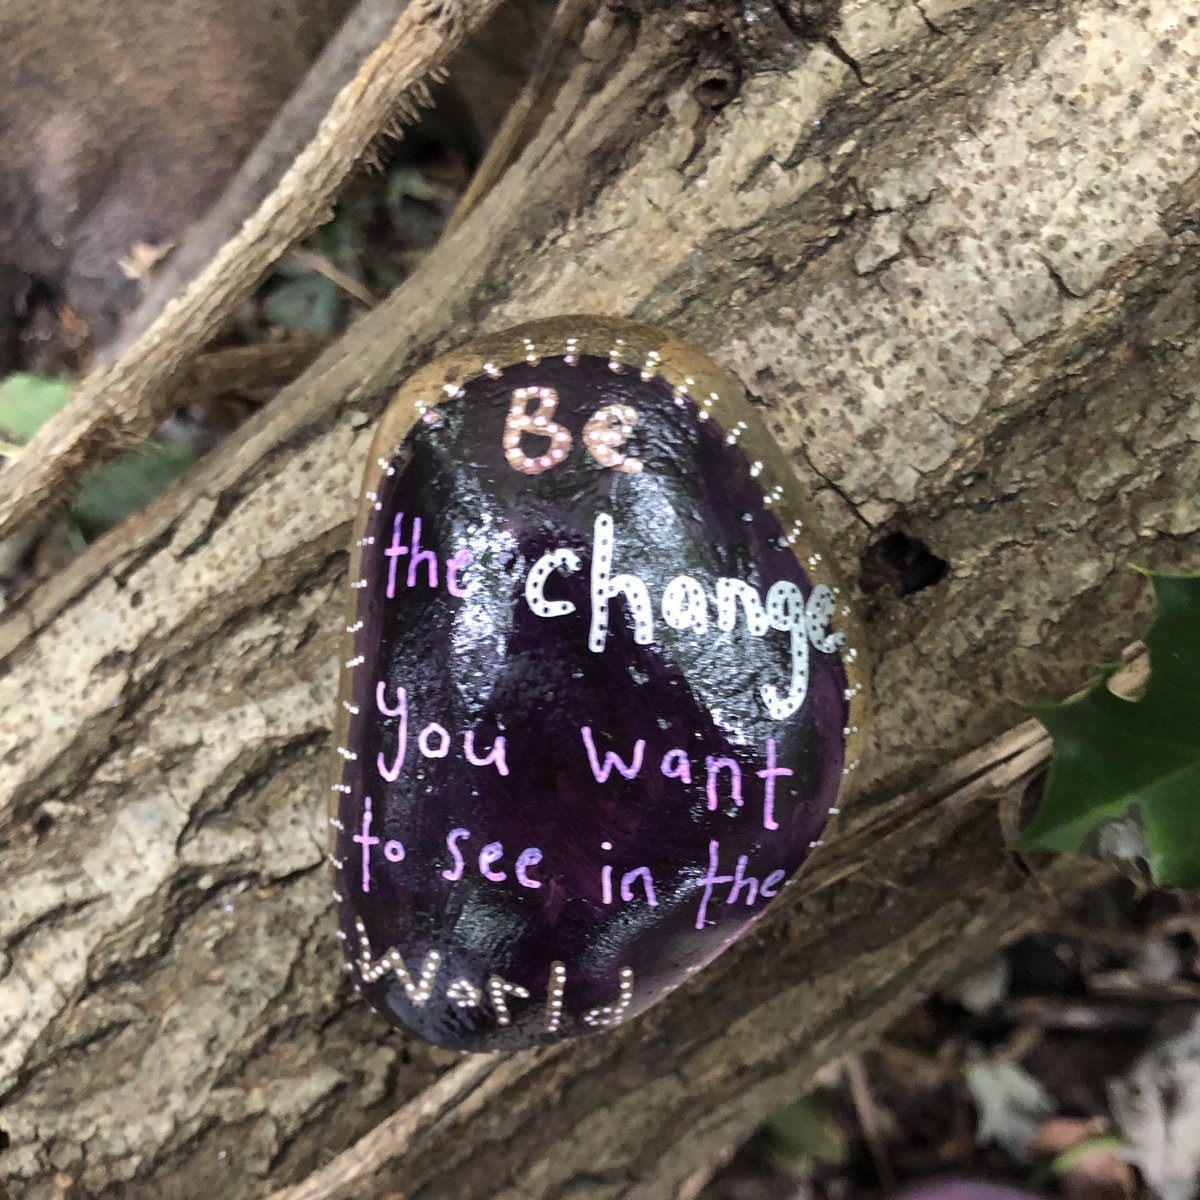 Be
the change
you want
to see in the
World